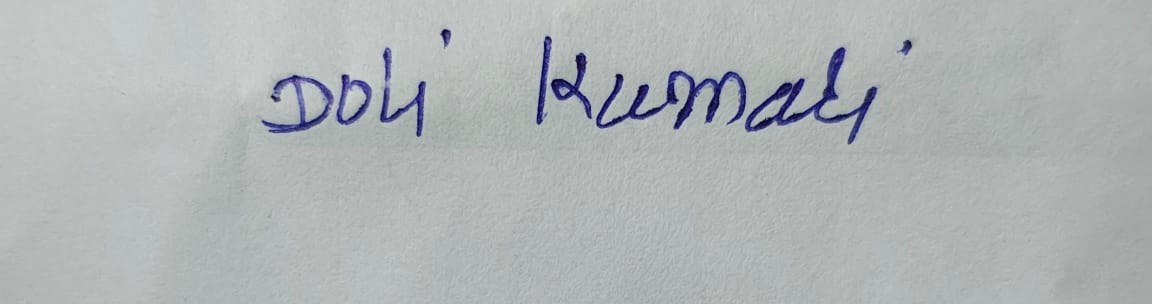 Doli Kumari